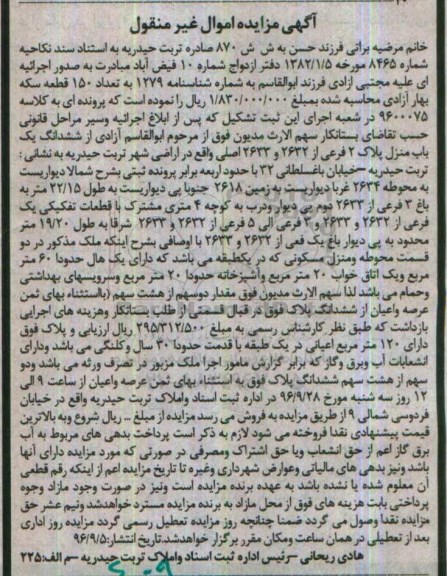 آگهی مزایده اموال غیر منقول
خانم مرضیه براتی فرزند حسن به ش ش ۸۷۰ صادره تربت حیدریه به استناد سند نکاحیه
شماره ۸۴۶۵ مورخه ۱۳۸۲/۱/۵ دفتر ازدواج شماره ۱۰ فیض آباد مبادرت به صدور اجرائیه
ای علیه مجتبی ازادی فرزند ابوالقاسم به شماره شناسنامه ۱۲۷۹ به تعداد ۱۵۰ قطعه سکه
بهار آزادی محاسبه شده بمبلغ ۱/۸۳۰/۰۰۰/۰۰۰ ریال را نموده است که پرونده ای به کلاسه
۹۶۰۰۰۷۵ در شعبه اجرای این ثبت تشکیل که پس از ابلاغ اجرائیه وسیر مراحل قانونی
حسب تقاضای بستانکار سهم الارث مدیون فوق از مرحوم ابوالقاسم آزادی از ششدانگ یک
باب منزل پلاک ۲ فرعی از ۲۶۳۲ و ۲۶۳۳ اصلی واقع در اراضی شهر تربت حیدریه به نشانی :
تربت حیدریه –خیابان باغسلطانی ۳۲ با حدود اربعه برابر پرونده ثبتی بشرح شمالا دیواریست
به محوطه ۲۶۳۴ غربا دیواریست به زمین ۲۶۱۸ جنوبا پی دیواریست به طول ۲۲/۱۵ متر به
باغ ۳ فرعی از ۲۶۳۳ دوم پی دیوار ودرب به کوچه ۴ متری مشترک با قطعات تفکیکی یک
فرعی از ۲۶۳۲ و ۲۶۳۳ و ۳ فرعی الی ۵ فرعی از ۲۶۳۲ و ۲۶۳۳ شرقا به طول ۱۹/۲۰ متر
محدود به پی دیوار باغ یک فعی از ۲۶۳۲ و ۲۶۳۳ با اوصافی بشرح اینکه ملک مذکور در دو
قسمت محوطه ومنزل مسکونی که در یکطبقه می باشد که دارای یک هال حدودا ۶۰ متر
مربع ویک اتاق خواب ۲۰ متر مربع وآشپزخانه حدودا ۲۰ متر مربع وسرویسهای بهداشتی
وحمام می باشد لذا سهم الارث مدیون فوق مقدار دوسهم از هشت سهم (باستثناء بهای ثمن
عرصه واعیان از ششدانگ پلاک فوق در قبال قسمتی از طلب بستانکار وهزینه های اجرایی
بازداشت که طبق نظر کارشناس رسمی به مبلغ ۲۹۵/۳۱۲/۵۰۰ ریال ارزیابی و پلاک فوق
دارای ۱۲۰ متر مربع اعیانی در یک طبقه با قدمت حدودا ۳۰ سال وکلنگی می باشد ودارای
انشعابات آب وبرق وگاز که برابر گزارش مامور اجرا ملک مزبور در تصرف ورثه می باشد ودو
سهم از هشت سهم ششدانگ پلاک فوق به استثناء بهای ثمن عرصه واعیان از ساعت ۹ الی
۱۲ روز سه شنبه مورخ ۹۶/۹/۲۸ در اداره ثبت اسناد واملاک تربت حیدریه واقع در خیابان
فردوسی شمالی ۹ از طریق مزایده به فروش می رسد مزایده از مبلغ ... ریال شروع وبه بالاترین
قیمت پیشنهادی نقدا فروخته می شود لازم به ذکر است پرداخت بدهی های مربوط به آب
برق گاز اعم از حق انشعاب ویا حق اشتراک ومصرفی در صورتی که مورد مزایده دارای آنها
باشد ونیز بدهی های مالیاتی وعوارض شهرداری وغیره تا تاریخ مزایده اعم از اینکه رقم قطعی
آن معلوم شده یا نشده باشد به عهده برنده مزایده است ونیز در صورت وجود مازاد وجوه
پرداختی بابت هزینه های فوق از محل مازاد به برنده مزایده مسترد خواهدشد ونیم عشر حق
مزایده نقدا وصول می گردد ضمنا چنانچه روز مزایده تعطیل رسمی گردد مزایده روز اداری
بعد از تعطیلی در همان ساعت ومکان مقرر برگزار خواهدشد.تاریخ انتشار:۹۶/۹/۵
هادی ریحانی –رئیس اداره ثبت اسناد واملاک تربت حیدریه –م الف:۲۲۵